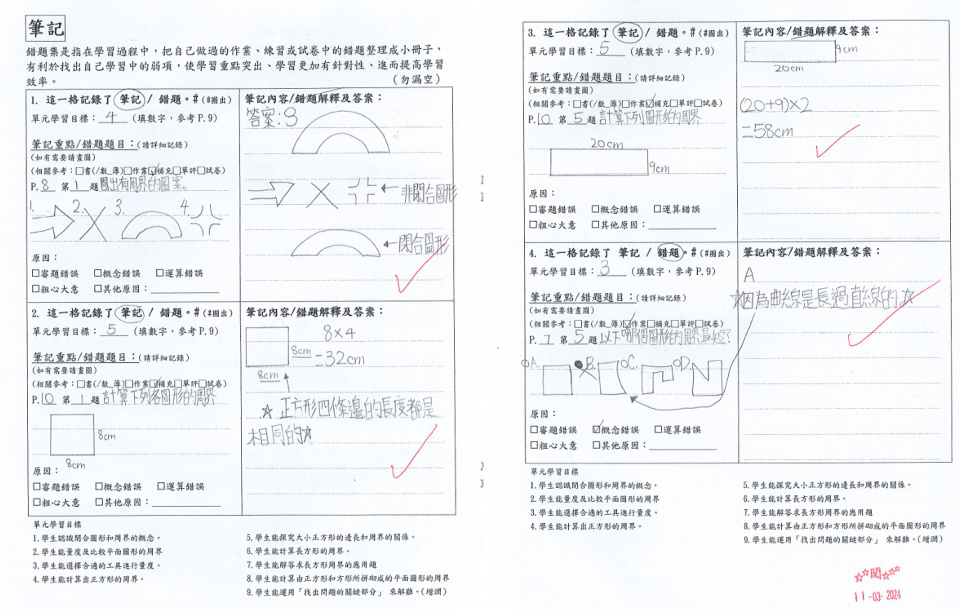 筆記
錯題集是指在學習過程中，把自己做過的作業、練習或試卷中的錯題整理成小冊子，
有利於找出自己學習中的弱項，使學習重點突出、學習更加有針對性、進而提高學習
效率。 (勿漏空)
1. 這一格記錄了 筆記 / 錯題。# (#圈出)
單元學習目標：4 (填數字，參考 P.9)
筆記重點/錯題題目：(請詳細記錄)
(如有需要請畫圖)
(相關參考：□書(/數_簿)□作業☑補充□單評□試卷)
P. 8 第 1 題 圈出有周界的圖案。
1. 2. 3. 4.
原因：
□審題錯誤 □概念錯誤 □運算錯誤
□粗心大意 □其他原因：
筆記內容/錯題解釋及答案：
答案：3
非閉合圖形
閉合圖形
2. 這一格記錄了 筆記 / 錯題。# (#圈出)
單元學習目標：5 (填數字，參考 P.9)
筆記重點/錯題題目：(請詳細記錄)
(如有需要請畫圖)
(相關參考：□書(/數_簿)□作業☑補充□單評□試卷)
P. 10 第 1 題 計算下列各圖形的周界
8cm
8cm
原因：
□審題錯誤 □概念錯誤 □運算錯誤
□粗心大意 □其他原因：
筆記內容/錯題解釋及答案：
8cm
8cm
8×4
=32cm
☆正方形四條邊的長度都是
相同的☆
單元學習目標
1. 學生認識閉合圖形和周界的概念。
2. 學生能量度及比較平面圖形的周界
3. 學生能選擇合適的工具進行量度。
4. 學生能計算出正方形的周界。
5. 學生能探究大小正方形的邊長和周界的關係。
6. 學生能計算長方形的周界。
7. 學生能解答求長方形周界的應用題
8. 學生能計算由正方形和方形所拼砌成的平面圖形的周界
9. 學生能運用「找出問題的關鍵部分」 來解難。(增潤)
3. 這一格記錄了 筆記 / 錯題。# (#圈出)
單元學習目標：5 (填數字，參考 P.9)
筆記重點/錯題題目：(請詳細記錄)
(如有需要請畫圖)
(相關參考：□書(/數_簿)□作業☑補充□單評□試卷)
P. 10 第 5 題 計算下列圖形的周界
20cm
9cm
原因：
□審題錯誤 □概念錯誤 □運算錯誤
□粗心大意 □其他原因：
筆記內容/錯題解釋及答案：
9cm
20cm
(20+9)×2
=58cm
4. 這一格記錄了 筆記 / 錯題。# (#圈出)
單元學習目標：3 (填數字，參考 P.9)
筆記重點/錯題題目：(請詳細記錄)
(如有需要請畫圖)
(相關參考：□書(/數_簿)☑作業□補充□單評□試卷)
P. 7 第 5 題 以下哪個圖形的周界最短?
A. B. C. D.
原因：
□審題錯誤 ☑概念錯誤 □運算錯誤
□粗心大意 □其他原因：
筆記內容/錯題解釋及答案：
A
☆因為曲線是長過直線的☆
單元學習目標
1. 學生認識閉合圖形和周界的概念。
2. 學生能量度及比較平面圖形的周界
3. 學生能選擇合適的工具進行量度。
4. 學生能計算出正方形的周界。
5. 學生能探究大小正方形的邊長和周界的關係。
6. 學生能計算長方形的周界。
7. 學生能解答求長方形周界的應用題
8. 學生能計算由正方形和方形所拼砌成的平面圖形的周界
9. 學生能運用「找出問題的關鍵部分」 來解難。(增潤)
☆☆閱☆☆
11-03-2024